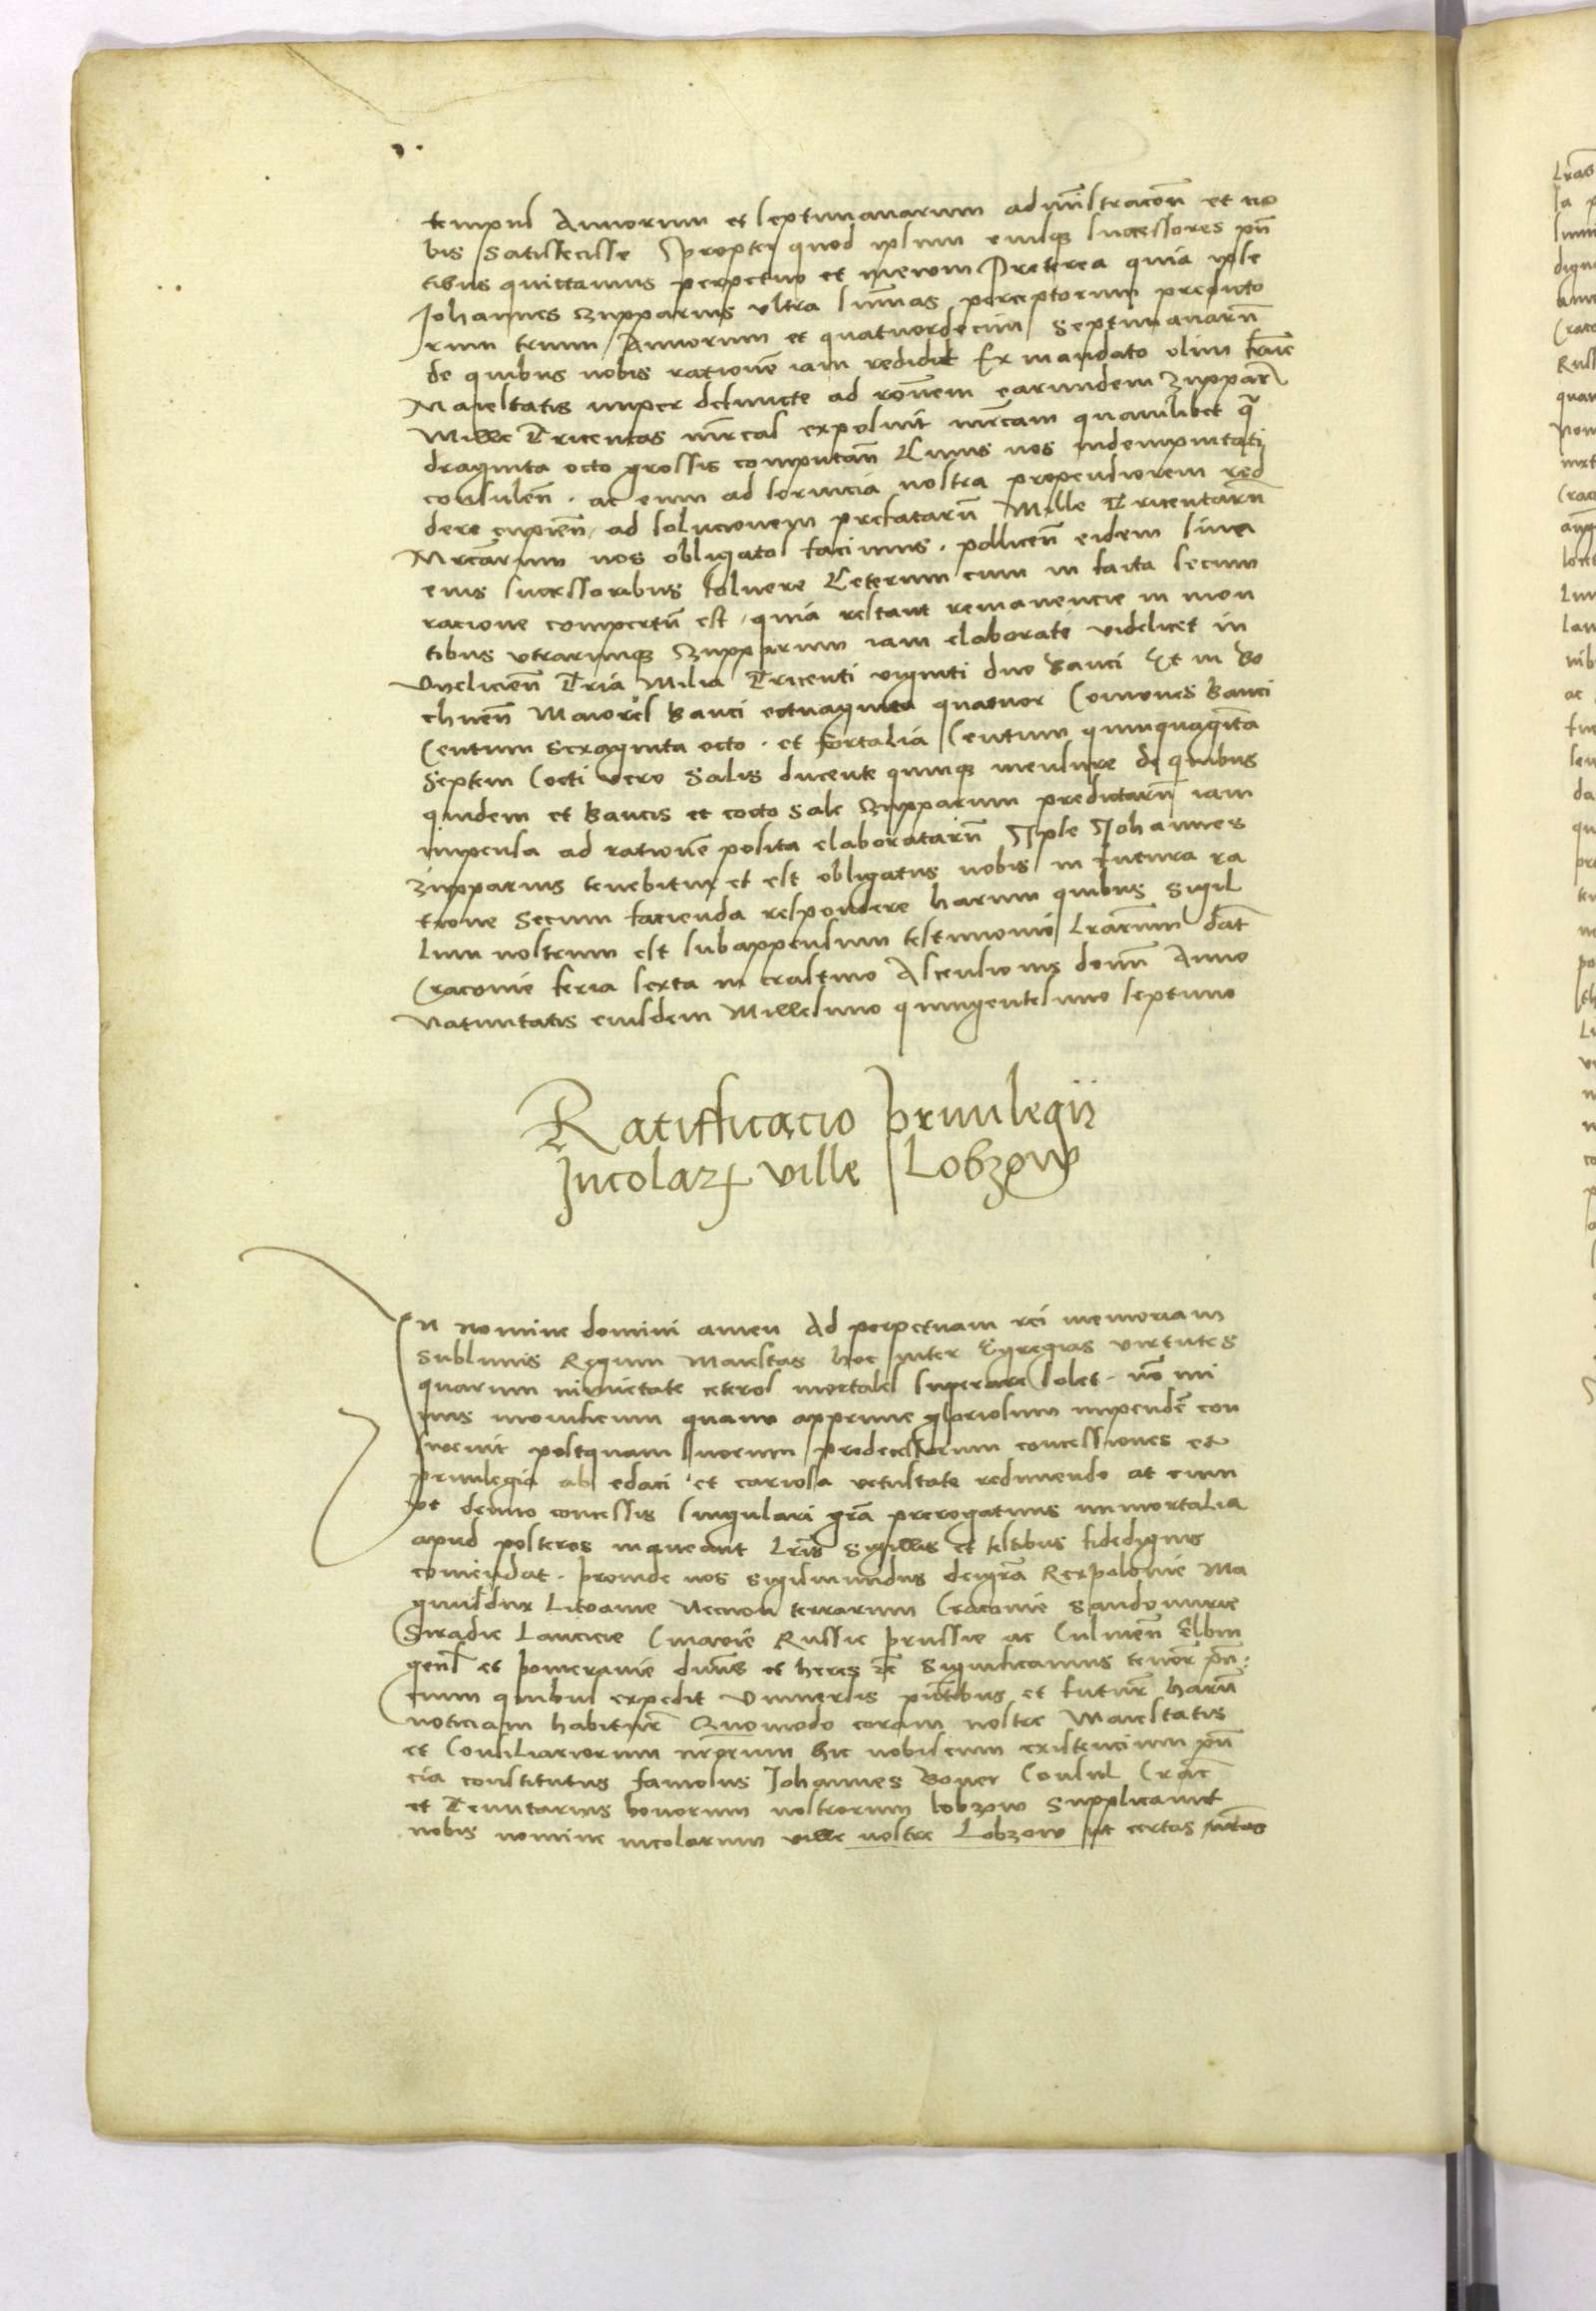 tempus Annorum et septimanarum administracōn̄ et no
bis satisfecisse Propter quod ipsum eiusq̄ successores pn̄
tibus quittamus perpetuo et inevom Preterea quia ipse
Johannes Zupparius ultra summas perceptorum predicto
rum trium Annorum et quatuordecim septimanarn̄
de quibus nobis rationē iam redidit Ex mandato olim frn̄e
Maiestatis nuper defuncte ad rōnem earundem Zuppar̄
Mille Tricentas mrcas exposuit mrcam quamlibet q̄
draginta octo grossis computan̄ Cuius nos indempnitati
consulen̄. ac eum ad servicia nostra propensiorem red
dere cupien̄, ad solucionem prefatarn̄ Mille Tricentarn̄
Mrcarum nos obligatos facimus. pollicen̄ eidem sive
eius successoribus solvere Ceterum cum in facta secum
racione compertū est, quia restant remanencie in mon
tibus utrarumq̄ Zupparum iam elaborate videlicet in
Vyelicien̄ Tria Milia Tricenti viginti duo bauci Et in Bo
chnen̄ Maiores bauci octuaginta quatuor Comunes bauci
Centum sexaginta octo. et fortalia Centum quinquagīta
Septem Cocti vero Salis ducente quinq̄ mensure de quibus
quidem et baucis et cocto sale Zupparum predictarn̄ iam
impensa ad rationē posita elaboratarn̄ Ipse Johannes
Zupparius tenebitur et est obligatus nobis in futura ra
tione Secum facienda respondere harum quibus Sigil
lum nostrum est subappensum testimonio Lrarum dat̄
Cracovie feria sexta in crastino Ascensionis domī Anno
Nativitatis eiusdem Millesimo quingentesimo septimo
Ratifficacio privilegij
Jncolaꝝ ville Lobzow
In nomine domini amen Ad perpetuam rei memoriam
Sublimis Regum Maiestas hoc inter Egregias virtutes
quarum nimietate ceteros mortales superare solet. nō mi
nus mouficum quam apprime gloriosum impendē con
suevit postquam suorum predecessorum concessiones et
privilegia ab edaci et cariosa vetustate redimendo at cum
de denuo concessis singulari grā prerogativis immortalia
apud posteros maneant Lrīs Sigillis et testibus fidedignis
comendat. proinde nos Sigismundus deigrā Rex polonie Ma
gnusdux Litvanie Necnon terrarum Cracovie Sandomirie
Siradie Lancicie Cuiavie Russie prussie ac Culmen̄ Elbin
gens̄ et pomeranie dn̄us et heres ꝛc̄ Significamus tenor̄ pn̄:
cium quibus expedit Universis pn̄tibus et futur̄ harn̄
noticiam habitur̄ Quomodo coram nostre Maiestatis
et Consiliariorum nr̄orum hic nobiscum existencium pn̄
cia constitutus famosus Johannes Boner Consul Crac̄
et Tenutarius bonorum nostrorum lobzow Supplicavit
nobis nomine incolarum ville nostre Lobzow ut certas lrās